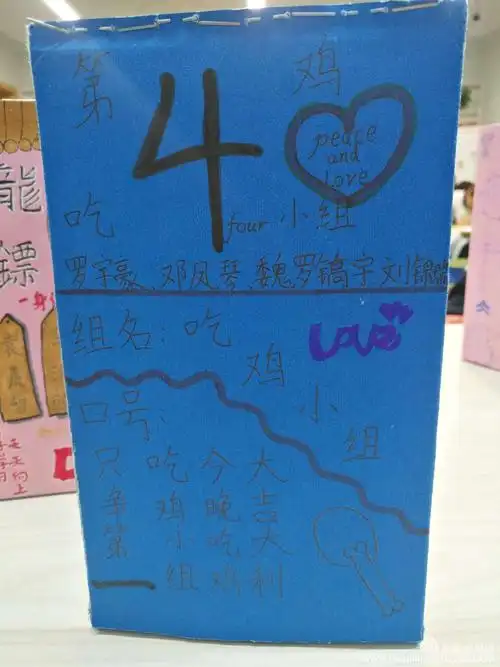 第 4 鸡
peace
and
love
吃 four 小组
罗宇豪、邓凤琴、魏罗镐宇 刘锦
组名:吃鸡小组
Love
口号:
只 吃 今 大
争 鸡 晚 吉
第 小 吃 大
一 组 鸡 利
龍
鏢
一身